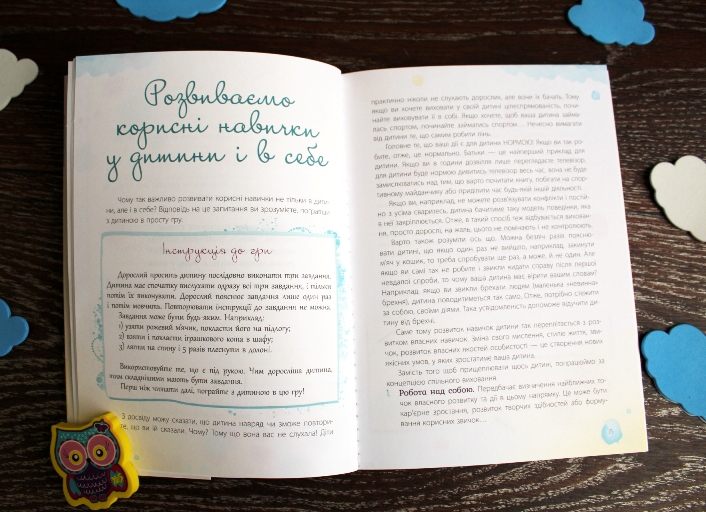 Розвиваємо
корисні навички
у дитини і в себе
Чому так важливо розвивати корисні навички не тільки в дити-
ни, але і в себе? Відповідь на це запитання ви зрозумієте, погравши
з дитиною в просту гру.
Інструкція до гри
Дорослий просить дитину послідовно виконати три завдання.
Дитина має спочатку вислухати одразу всі три завдання, і тільки
потім їх виконувати. Дорослий пояснює завдання лише один раз
і потім мовчить. Повторювати інструкції до завдання не можна.
Завдання може бути будь-яким. Наприклад:
1) узяти рожевий м'ячик, покласти його на підлогу;
2) взяти і покласти іграшкового коня в шафу;
3) лягти на спину і 5 разів плеснути в долоні.
Використовуйте те, що є під рукою. Чим доросліша дитина,
тим складнішими мають бути завдання.
Перш ніж читати далі, пограйте з дитиною в цю гру!
З досвіду можу сказати, що дитина навряд чи зможе повтори-
те, що ви їй сказали. Чому? Тому що вона вас не слухала! Діти
практично ніколи не слухають дорослих, але вони їх бачать. Тому
якщо ви хочете виховати у своїй дитині цілеспрямованість, почи-
найте виховувати її в собі. Якщо хочете, щоб ваша дитина займа-
лась спортом, починайте займатись спортом... Нечесно вимагати
від дитини те, що самим робити лінь.
Головне те, що ваші дії є для дитини НОРМОЮ! Якщо ви так ро-
бите, отже, це нормально. Батьки — це найперший приклад для
дитини. Якщо ви в години дозвілля лише переглядаєте телевізор,
для дитини буде нормою дивитись телевізор весь час, вона не буде
замислюватись над тим, що варто почитати книгу, побігати на спор-
тивному майданчику або приділити час будь-якій іншій діяльності.
Якщо ви, наприклад, не можете розв'язувати конфлікти і постій-
но з усіма сваритесь, дитина бачитиме таку модель поведінки, яка
в неї закріплюється. Отже, в такий спосіб теж відбувається вихован-
ня, просто дорослі, на жаль, цього не помічають і не контролюють.
Варто також розуміти ось що. Можна безліч разів поясню-
вати дитині, що якщо один раз не вийшло, наприклад, закинути
м'яч у кошик, то треба спробувати ще раз, а може, й не один. Але
якщо ви самі так не робите і звикли кидати справу після першої
невдалої спроби, то чому ваша дитина має вірити вашим словам?
Наприклад, якщо ви звикли брехати людям (маленька «невинна»
брехня), дитина поводитиметься так само. Отже, потрібно стежити
за собою, своїми діями. Така усвідомленість допоможе відучити ди-
тину від брехні.
Саме тому розвиток навичок дитини так переплітається з роз-
витком власних навичок. Зміна свого мислення, стилю життя, зви-
чок, розвиток власних якостей особистості — це створення нових
якісних умов, у яких зростатиме ваша дитина.
Замість того щоб прищеплювати щось дитині, попрацюймо за
концепцією спільного виховання.
1. Робота над собою. Передбачає визначення найближчих то-
чок власного розвитку та дії в цьому напрямку. Це може бути
кар'єрне зростання, розвиток творчих здібностей або форму-
вання корисних звичок...